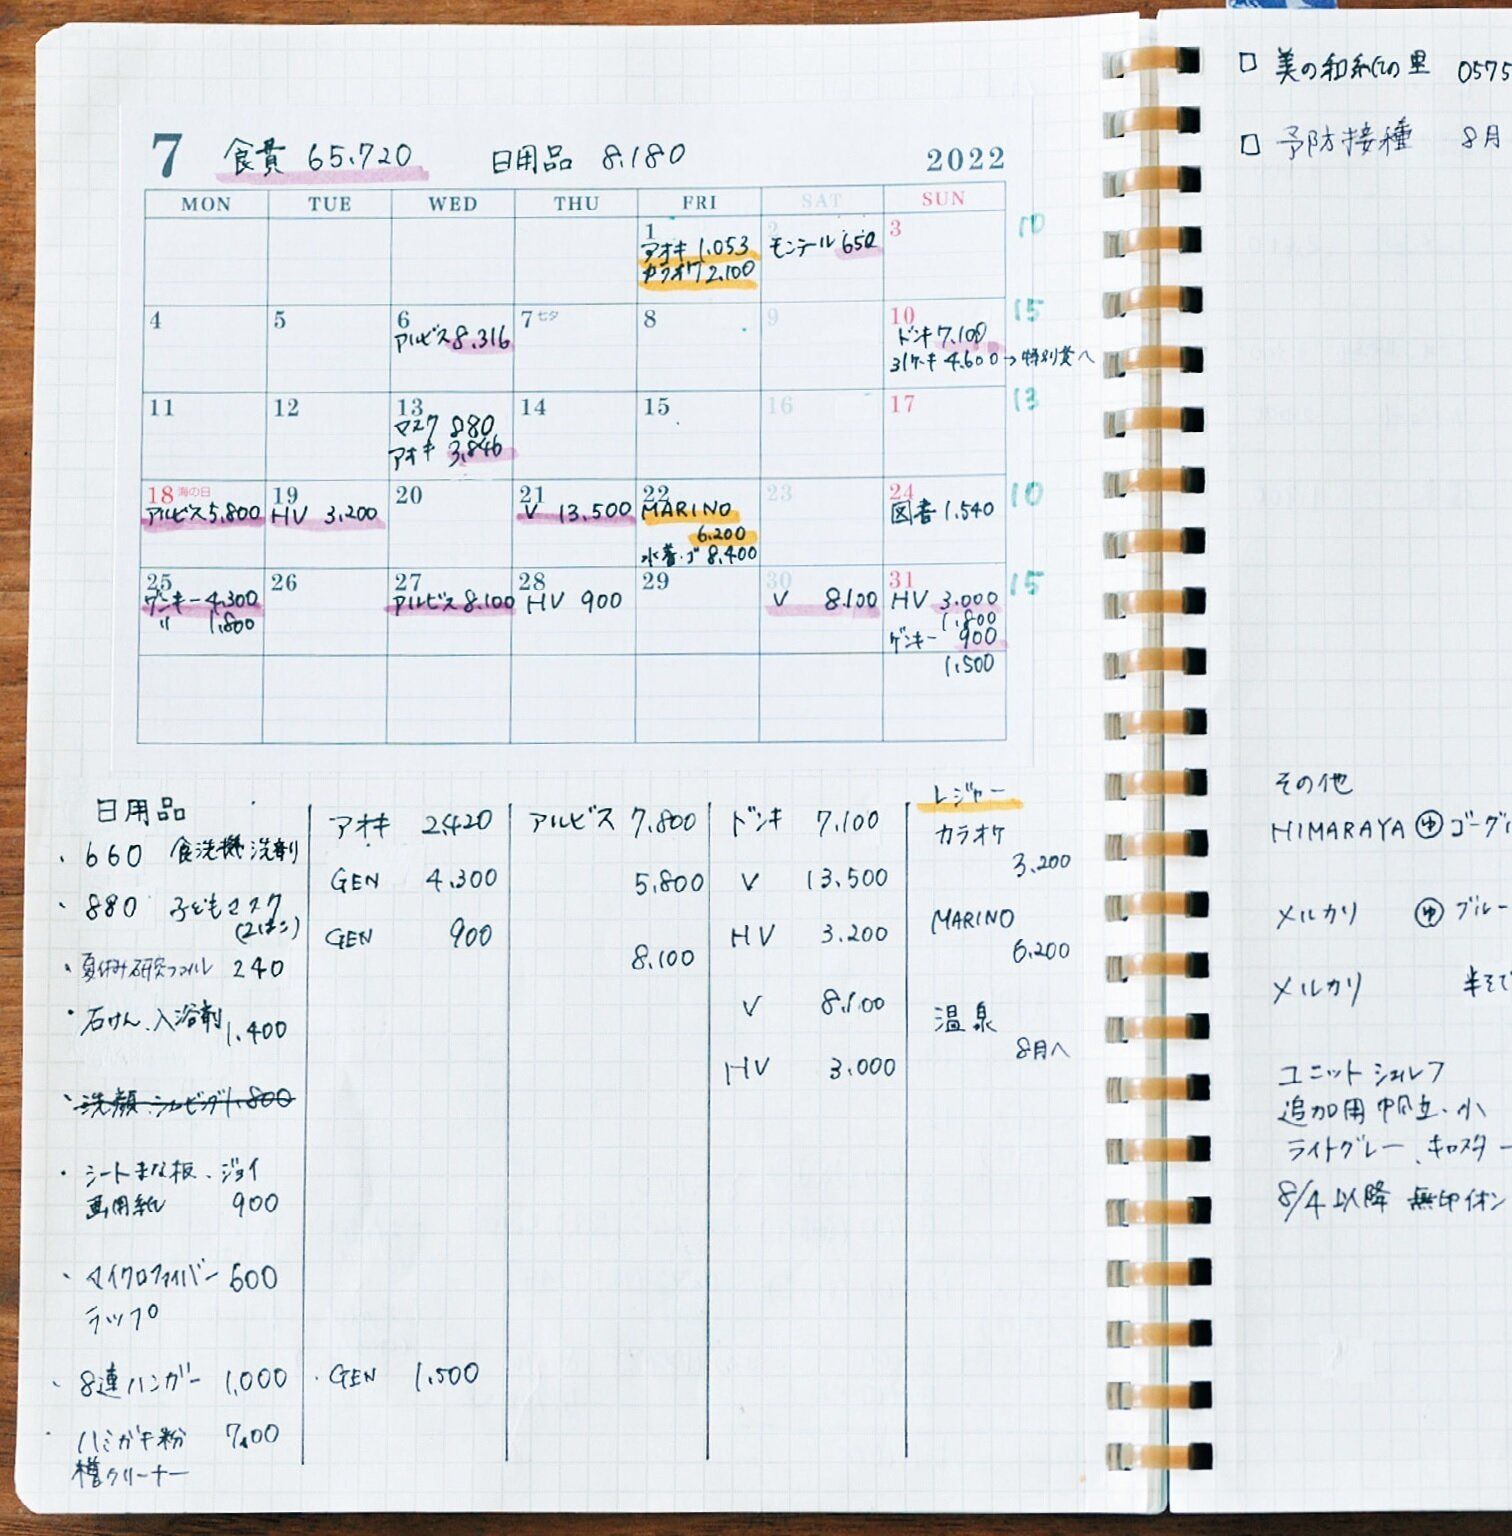 7 食費 65.720 日用品 8.180 2022
MON TUE WED THU FRI SAT SUN
1 2 3 10
アオキ 1.053 モンテール 650
カラオケ 2.100
4 5 6 7 七夕 8 9 10 15
アルビス 8.316 ドンキ 7.100
31ケーキ 4.600→特別費へ
11 12 13 14 15 16 17 13
マスク 880
アオキ 3.846
18 海の日 19 20 21 22 23 24 10
アルビス 5.800 HV 3.200 V 13.500 MARINO 図書 1.540
6.200
水着.ゴ 8.400
25 26 27 28 29 30 31 15
ゲンキー 4.300 アルビス 8.100 HV 900 V 8.100 HV 3.000
〃 1.800 1.800
ゲンキー 900
1.500
日用品
・660 食洗機洗剤
・880 子どもマスク
(2はこ)
・夏休み研究ファイル 240
・石けん、入浴剤
1.400
・洗顔.シェービング 1.800
・シートまな板、ジョイ
画用紙 900
・マイクロファイバー 600
ラップ
・8連ハンガー 1.000
・ハミガキ粉 700
クリーナー
アオキ 2.420
GEN 4.300
GEN 900
・GEN 1.500
アルビス 7.800
5.800
8.100
ドンキ 7.100
V 13.500
HV 3.200
V 8.100
HV 3.000
レジャー
カラオケ
3.200
MARINO
6.200
温泉
8月へ
□ 美の和紙の里 0575
□ 予防接種 8月
その他
HIMARAYA ゆ ゴーグル
メルカリ ゆ ブルー
メルカリ 半そで
ユニットシェルフ
追加用 帆立.小
ライトグレー、キャスター
8/4以降 無印イオン